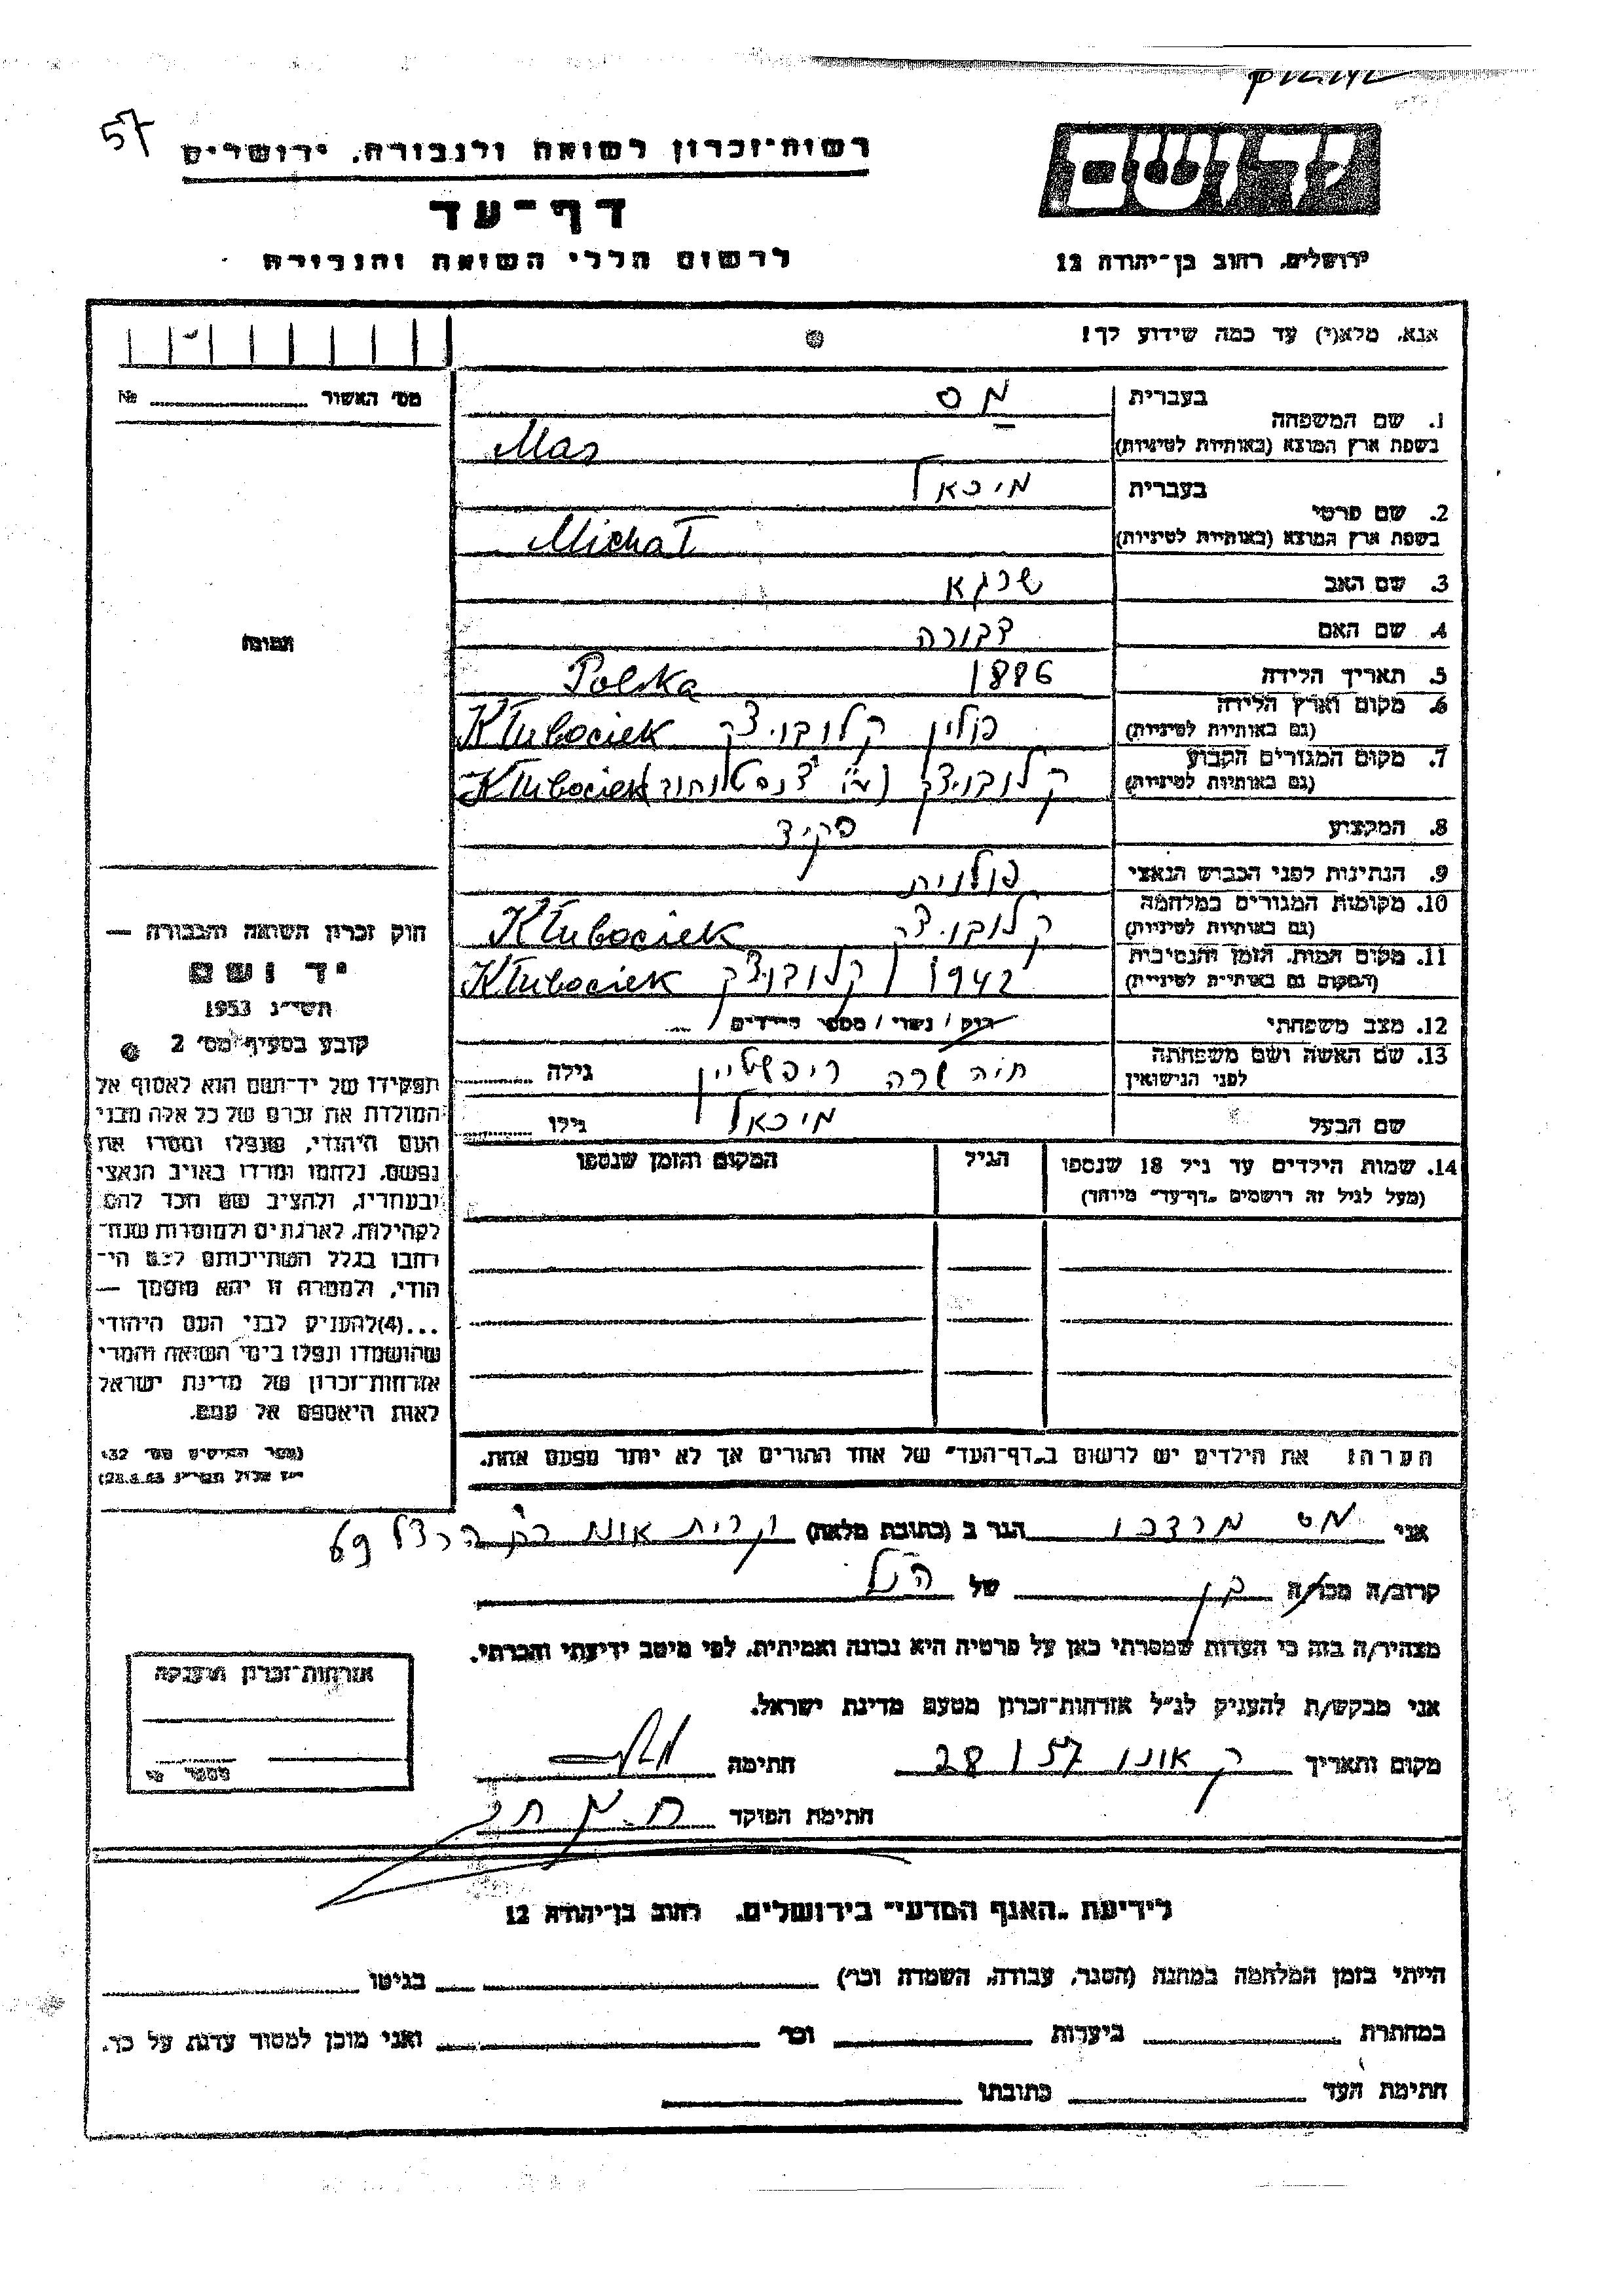 57
רשות־זכרון לשואה ולגבורה, ירושלים
יד ושם
דף־עד
לרשום חללי השואה והגבורה
ירושלים, רחוב בן־יהודה 12
אנא, מלא(י) עד כמה שידוע לך!
מס׳ האשור № 
1. שם המשפחה
בעברית מס
בשפת ארץ המוצא (באותיות לטיניות) Mas
2. שם פרטי
בעברית מיכאל
בשפת ארץ המוצא (באותיות לטיניות) Michał
3. שם האב שרגא
4. שם האם דבורה
5. תאריך הלידה 1886 Polska
6. מקום וארץ הלידה
(גם באותיות לטיניות) פולין קלובוצק Kłubociek
7. מקום המגורים הקבוע
(גם באותיות לטיניות) קלובוצק Kłubociek
8. המקצוע פקיד
9. הנתינות לפני הכבוש הנאצי פולנית
10. מקומות המגורים במלחמה
(גם באותיות לטיניות) קלובוצק Kłubociek
11. מקום המות, הזמן והנסיבות
(המקום גם באותיות לטיניות) 1942 קלובוצק Kłubociek
12. מצב משפחתי רווק / נשוי / מספר הילדים
13. שם האשה ושם משפחתה
לפני הנישואין חיה שרה גילה
שם הבעל מיכאל גילו
14. שמות הילדים עד גיל 18 שנספו הגיל המקום והזמן שנספו
(מעל לגיל זה רושמים „דף־עד״ מיוחד)
תמונה
חוק זכרון השואה והגבורה —
יד ושם
תשי״ג 1953
קובע בסעיף מס׳ 2
תפקידו של יד־ושם הוא לאסוף אל
המולדת את זכרם של כל אלה מבני
העם היהודי, שנפלו ומסרו את
נפשם, נלחמו ומרדו באויב הנאצי
ובעוזריו, ולהציב שם וזכר להם
לקהילות, לארגונים ולמוסדות שנח־
רבו בגלל השתייכותם לעם הי־
הודי, ולמטרה זו יהא מוסמך —
...(4) להעניק לבני העם היהודי
שהושמדו ונפלו בימי השואה והמרי
אזרחות־זכרון של מדינת ישראל
לאות היאספם אל עמם.
הערה! את הילדים יש לרשום ב„דף־העד״ של אחד ההורים אך לא יותר מפעם אחת.
אני מס מרדכי הגר ב (כתובת מלאה) קרית אונו 69
קרוב/ה מכר/ה בן של הנ״ל
מצהיר/ה בזה כי העדות שמסרתי כאן על פרטיה היא נכונה ואמיתית, לפי מיטב ידיעתי והכרתי.
אני מבקש/ת להעניק לנ״ל אזרחות־זכרון מטעם מדינת ישראל.
מקום ותאריך ק אונו 28/57 חתימה
חתימת הפוקד
אזרחות־זכרון הוענקה
מספר
לידיעת „האגף המדעי״ בירושלים, רחוב בן־יהודה 12
הייתי בזמן המלחמה במחנה (הסגר, עבודה, השמדה וכו׳) בגיטו
במחתרת ביערות וכו׳ ואני מוכן למסור עדות על כך.
חתימת העד כתובתו